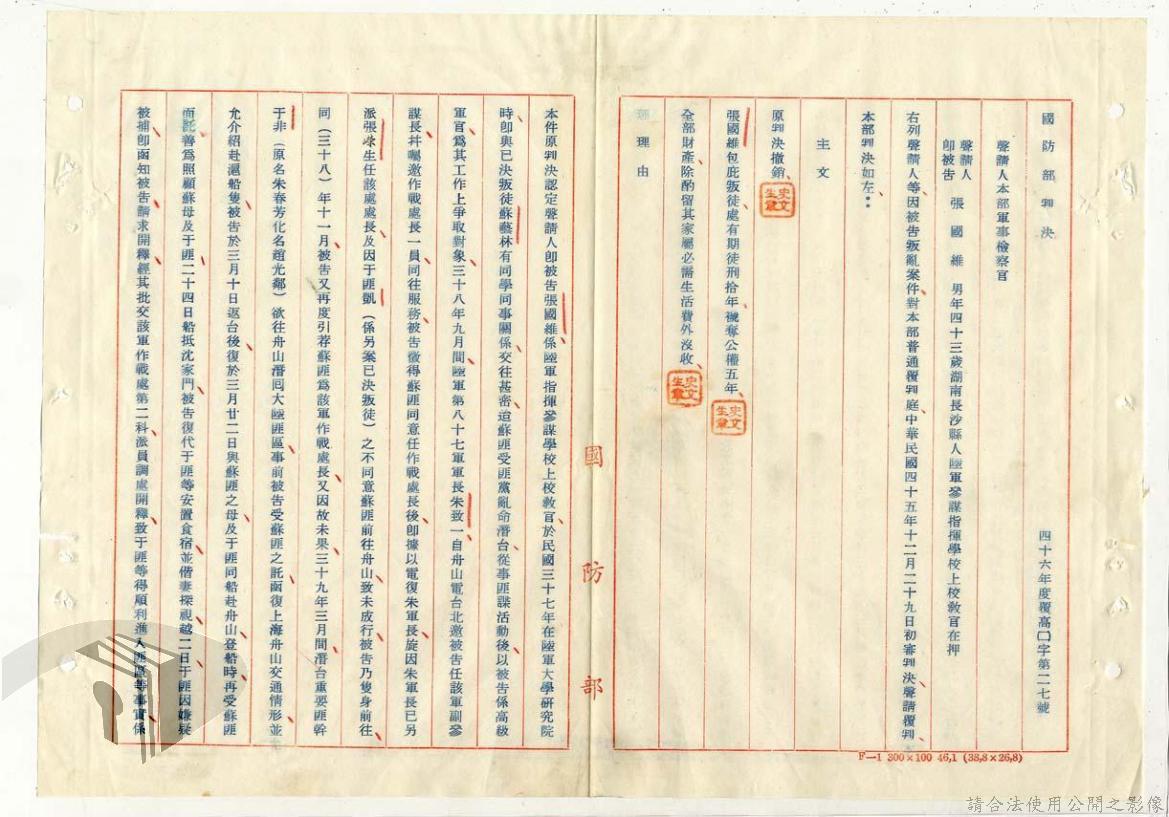 國防部判決
四十六年度覆高(一)字第二七號
聲請人本部軍事檢察官
聲請人
即被告 張國維 男年四十三歲湖南長沙縣人陸軍參謀指揮學校上校教官在押
右列聲請人等因被告叛亂案件對本部普通覆判庭中華民國四十五年十二月二十九日初審判決聲請覆判、
本部判決如左：
主文
原判決撤銷、
張國維包庇叛徒處有期徒刑拾年褫奪公權五年、
全部財產、除酌留其家屬必需生活費外沒收、
理由
史文生章
史文生章
史文生章
本件原判決認定聲請人即被告張國維、係陸軍指揮參謀學校上校教官、於民國三十七年在陸軍大學研究院
時、即與已決叛徒蘇藝林有同學同事關係、交往甚密、迨蘇匪受匪黨亂命潛台、從事匪諜活動後、以被告係高級
軍官、為其工作上爭取對象、三十八年九月間、陸軍第八十七軍軍長朱致一自舟山電台北邀被告任該軍副參
謀長、并囑邀作戰處長一員、同往服務、被告徵得蘇匪同意任作戰處長後、即據以電復朱軍長、旋因朱軍長已另
派張滎生任該處處長、及因于匪凱（係另案已決叛徒）之不同意蘇匪前往舟山、致未成行、被告乃隻身前往、
同（三十八）年十一月、被告又再度引荐蘇匪為該軍作戰處長、又因故未果、三十九年三月間、潛台重要匪幹
于非（原名朱春芳化名趙光鄰）欲往舟山潛囘大陸匪區、事前被告受蘇匪之託函復上海舟山交通情形、並
允介紹赴滬船隻、被告於三月十日返台後、復於三月廿二日與蘇匪之母及于匪同船赴舟山、登船時、再受蘇匪
面託善為照顧蘇母及于匪、二十四日船抵沈家門、被告復代于匪等安置食宿、並偕妻探視、越二日于匪因嫌疑
被捕、即函知被告、請求開釋、經其批交該軍作戰處第二科派員調處開釋、致于匪等得順利進入匪區等事實、係
國防部
F—1 300×100 46,1 (38,8×26,8)
請合法使用公開之影像